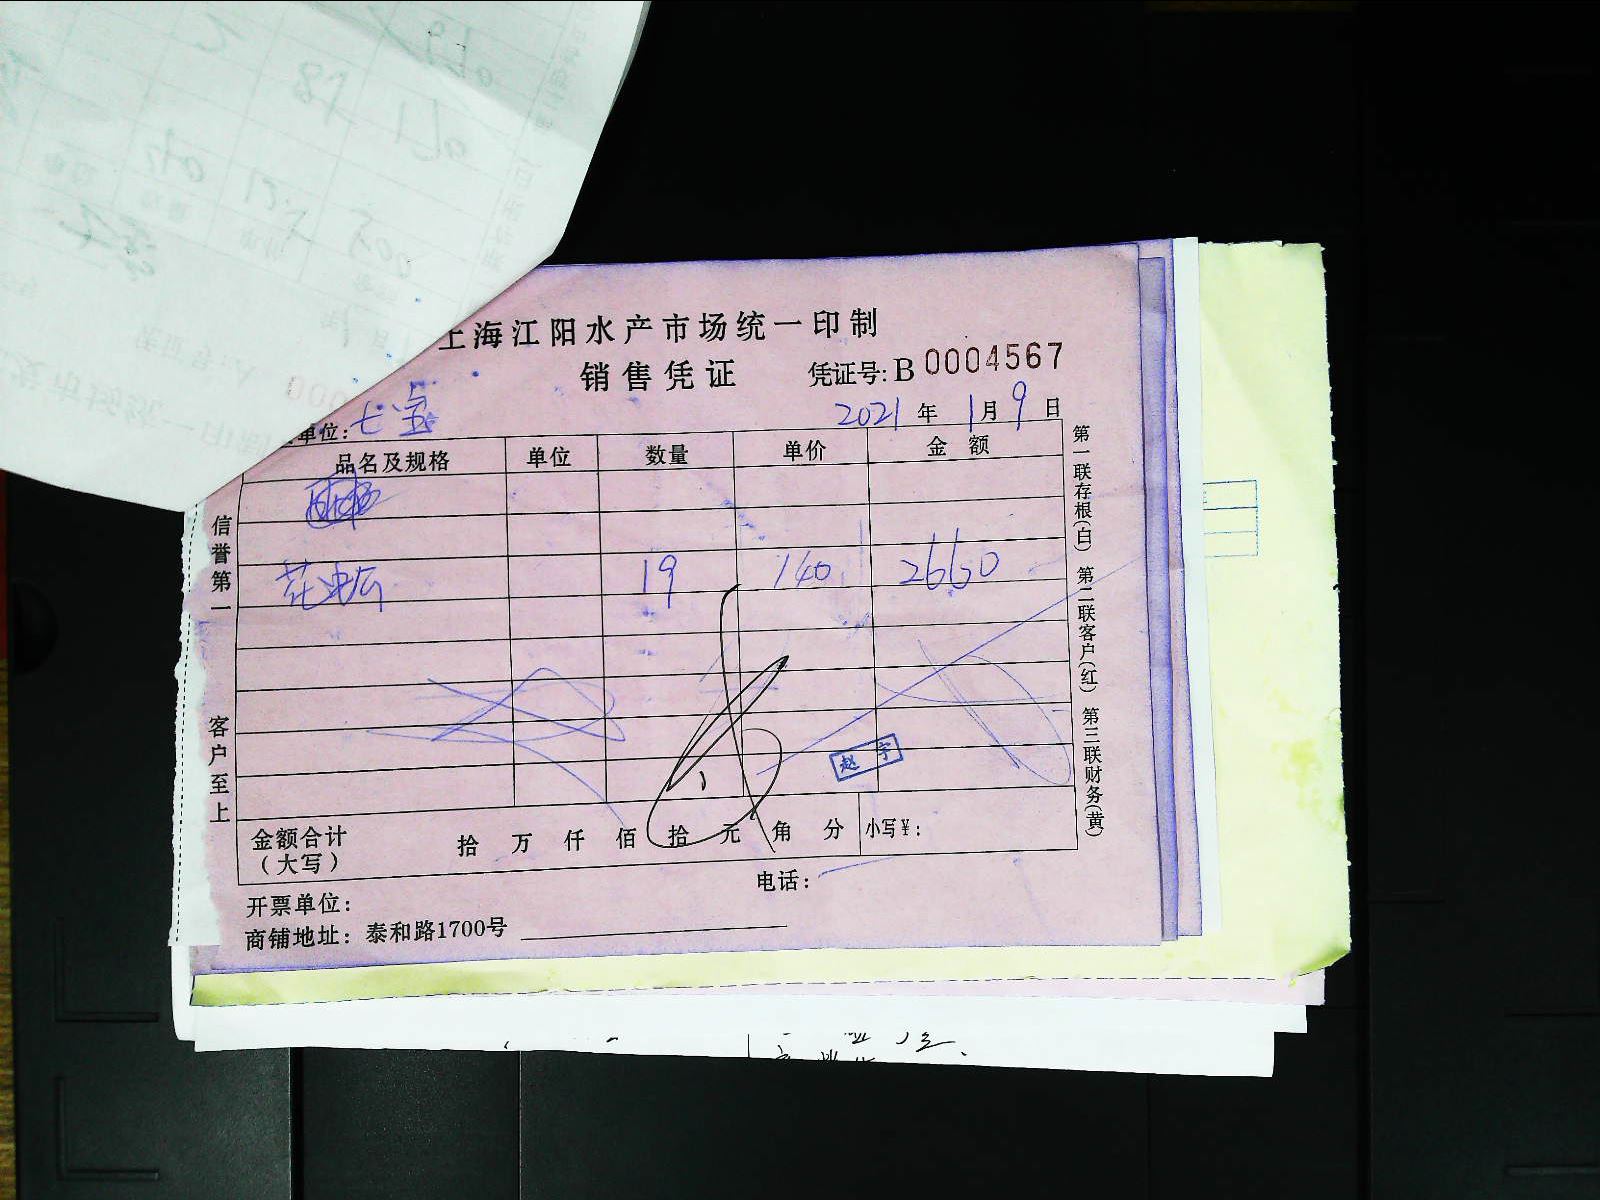 上海江阳水产市场统一印制
销售凭证 凭证号: B 0004567
单位: 七宝 2021 年 1 月 9 日
品名及规格 单位 数量 单价 金额
19 140 2660
赵宇
金额合计（大写） 拾 万 仟 佰 拾 元 角 分 小写¥:
电话:
开票单位:
商铺地址: 泰和路1700号
信誉第一 客户至上
第一联存根(白) 第二联客户(红) 第三联财务(黄)